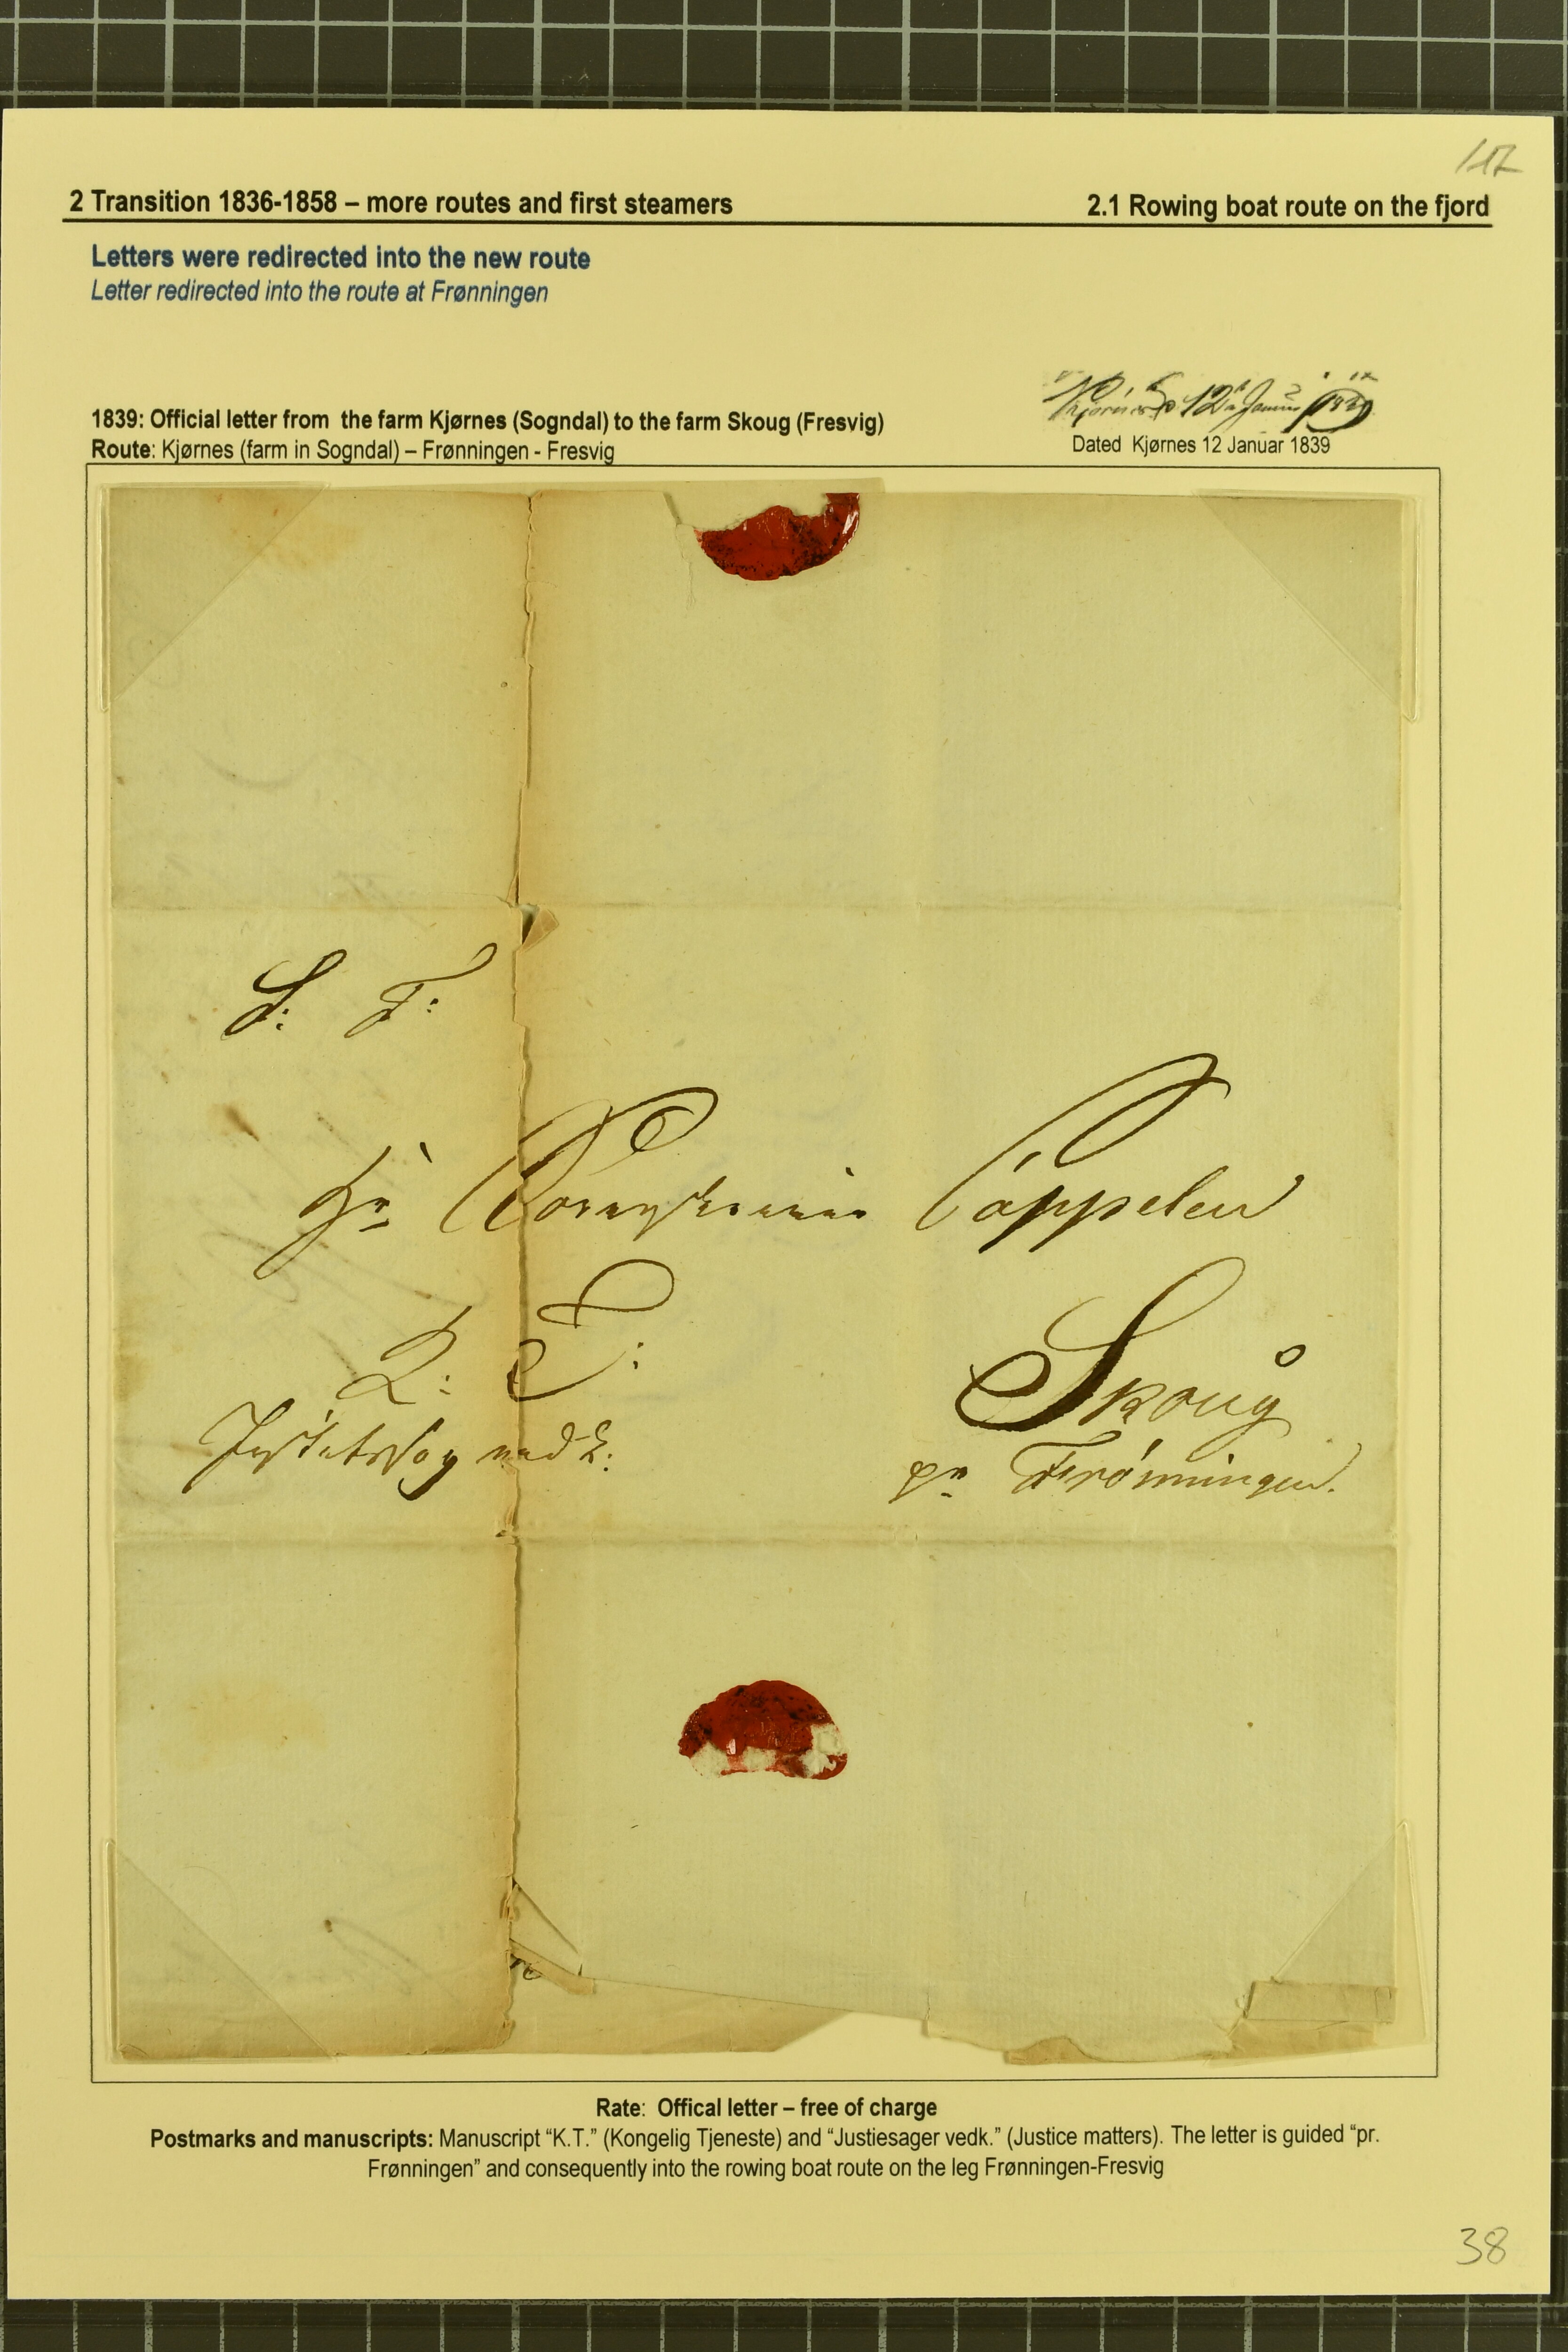 117
2 Transition 1836-1858 – more routes and first steamers
2.1 Rowing boat route on the fjord
Letters were redirected into the new route
Letter redirected into the route at Frønningen
Kjørnes 12 Januar 1839
1839: Official letter from the farm Kjørnes (Sogndal) to the farm Skoug (Fresvig)
Dated Kjørnes 12 Januar 1839
Route: Kjørnes (farm in Sogndal) – Frønningen - Fresvig
S: T:
Hr Cappelen
K: T:
Skoug
Justitssag vedk:
pr Frønningen.
Rate: Offical letter – free of charge
Postmarks and manuscripts: Manuscript “K.T.” (Kongelig Tjeneste) and “Justiesager vedk.” (Justice matters). The letter is guided “pr.
Frønningen” and consequently into the rowing boat route on the leg Frønningen-Fresvig
38